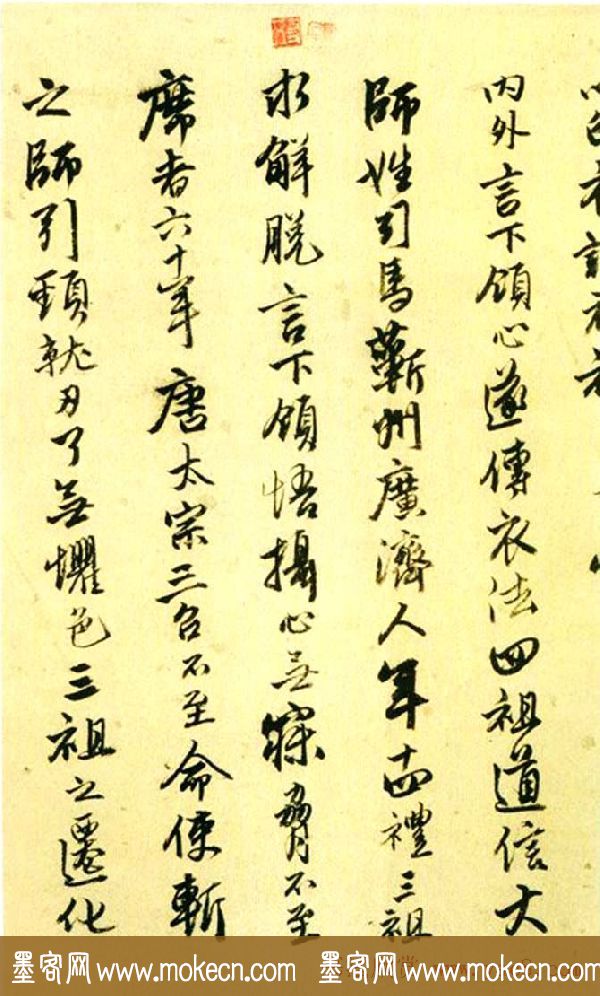 內外言下領心遂傳衣法四祖道信大
師姓引馬蘄州廣濟人年十四禮三祖
求解脫言下領悟攝心無寐脅不至
席者六十年唐太宗三召不至命使斬
之師引頸就刃了無懼色三祖之遷化
墨客网www.mokecn.com 墨客网www.mokecn.com